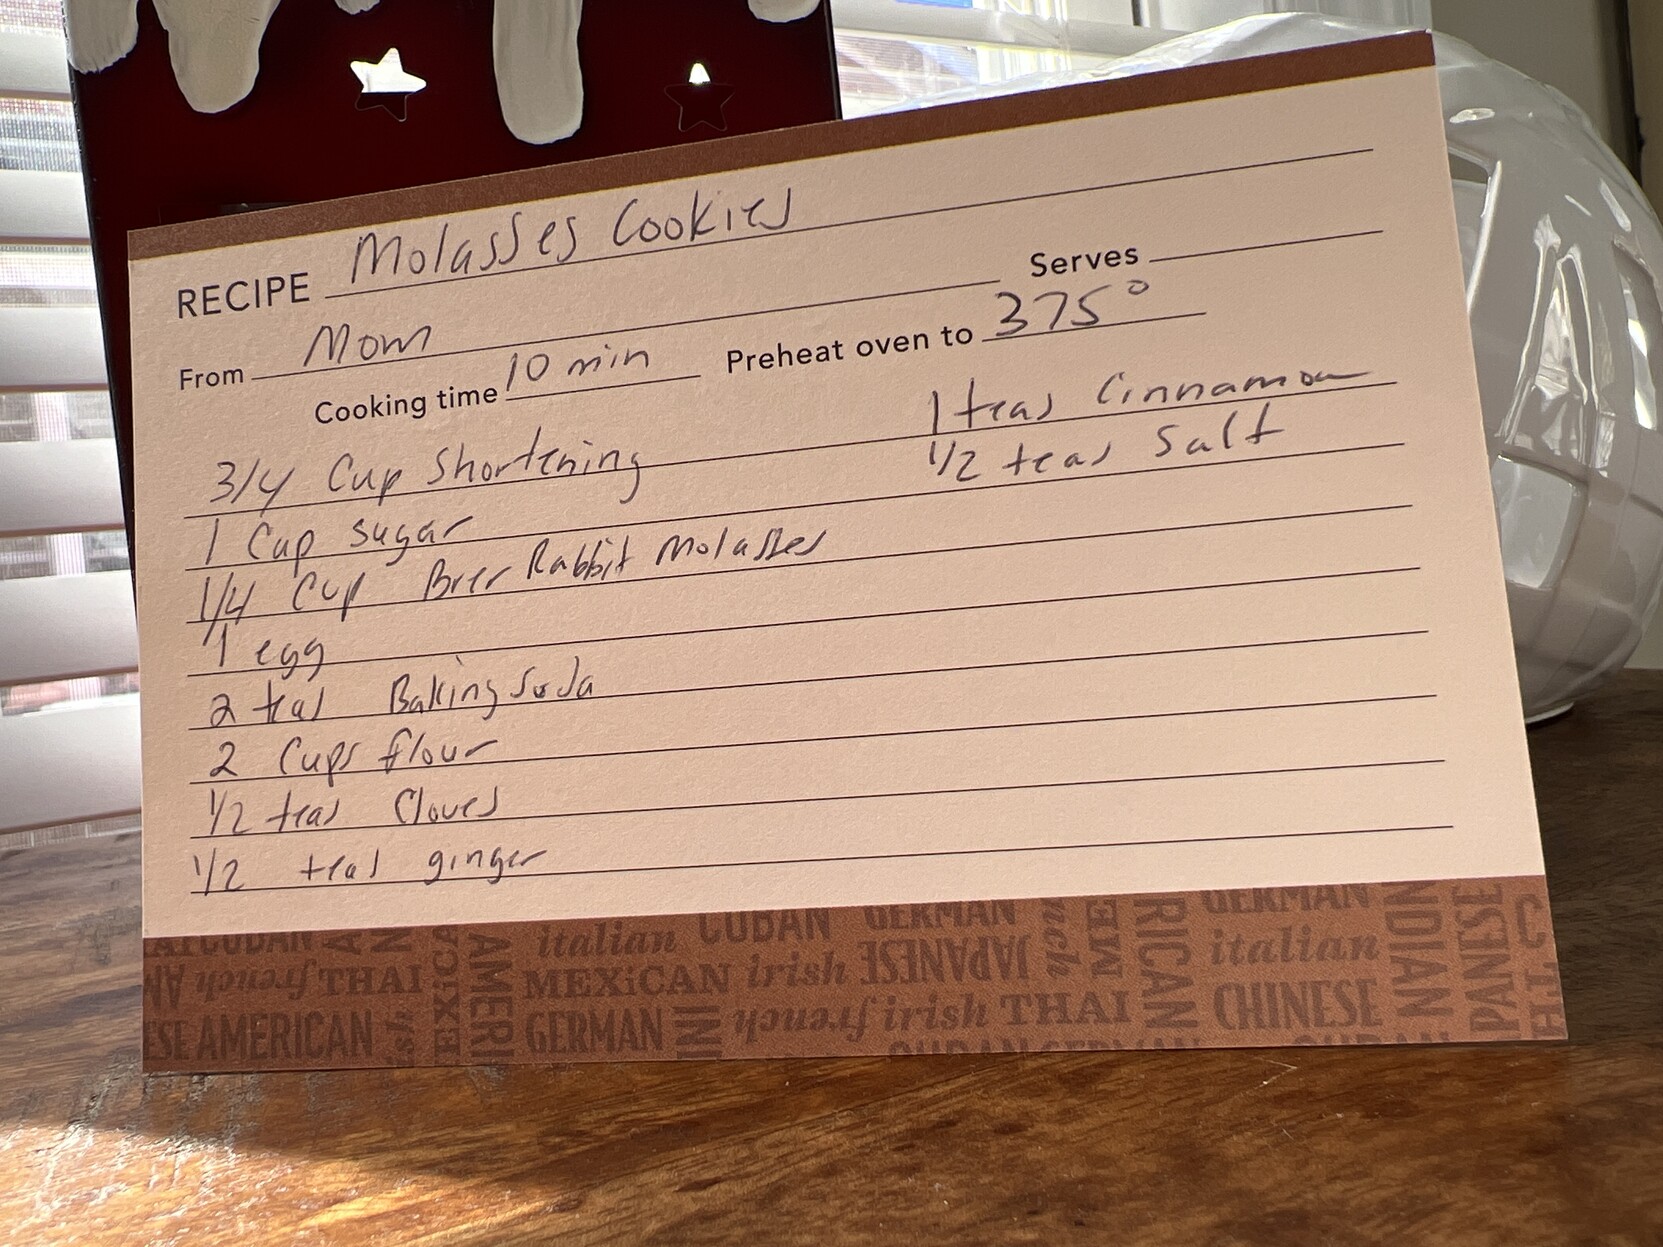 RECIPE Molasses Cookies
From Mom Serves
Cooking time 10 min Preheat oven to 375°
3/4 Cup Shortening 1 teas Cinnamon
1 Cup sugar 1/2 teas Salt
1/4 Cup Brer Rabbit Molasses
1 egg
2 teas Baking Soda
2 Cups flour
1/2 teas Cloves
1/2 teas ginger
italian CUBAN GERMAN GERMAN
french THAI MEXiCAN irish JAPANESE italian
AMERICAN GERMAN french irish THAI CHINESE